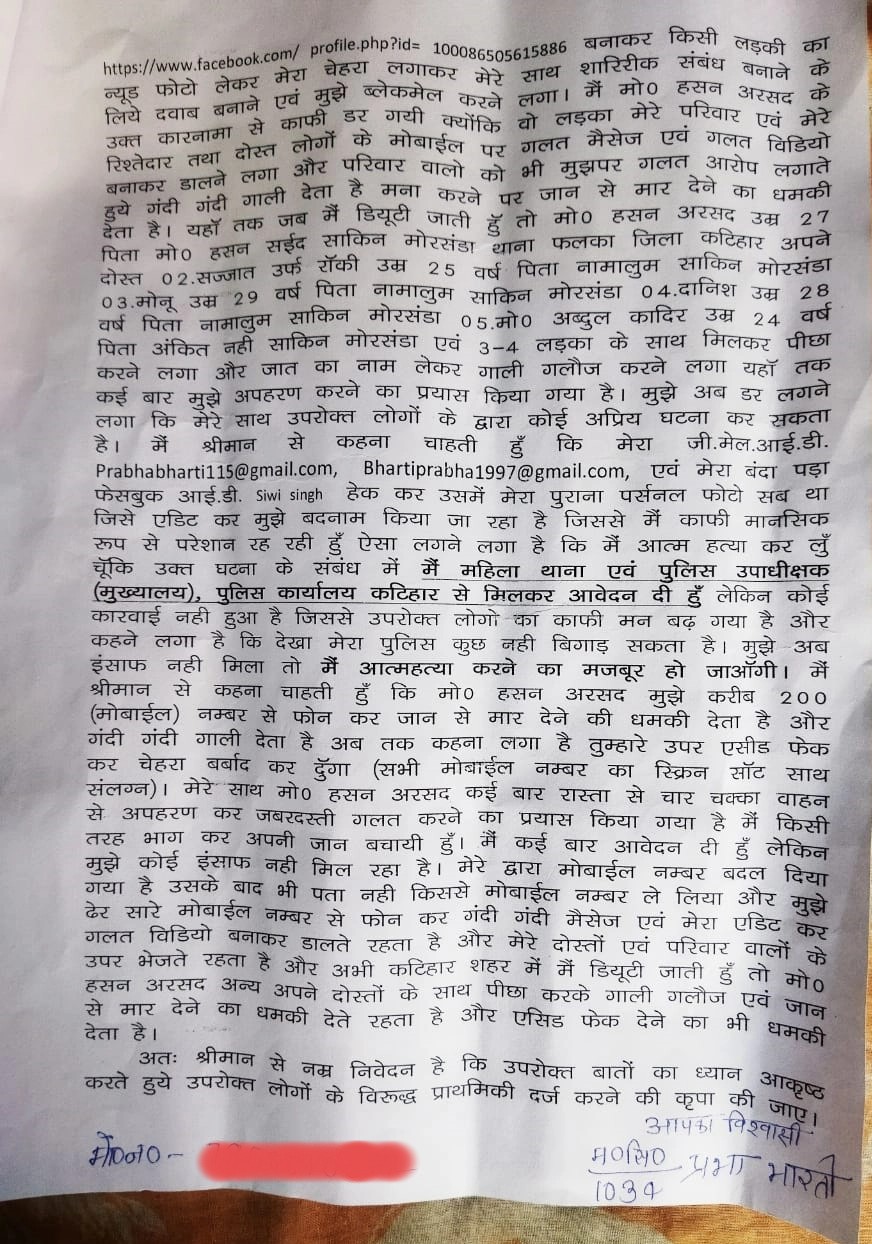 https://www.facebook.com/ profile.php?id= 100086505615886 बनाकर किसी लड़की का
न्यूड फोटो लेकर मेरा चेहरा लगाकर मेरे साथ शारिरीक संबंध बनाने के
लिये दवाब बनाने एवं मुझे ब्लेकमेल करने लगा। मैं मो0 हसन अरसद के
उक्त कारनामा से काफी डर गयी क्योंकि वो लड़का मेरे परिवार एवं मेरे
रिश्तेदार तथा दोस्त लोगों के मोबाईल पर गलत मैसेज एवं गलत विडियो
बनाकर डालने लगा और परिवार वालो को भी मुझपर गलत आरोप लगाते
हुये गंदी गंदी गाली देता है मना करने पर जान से मार देने का धमकी
देता है। यहॉ तक जब मैं डियूटी जाती हूँ तो मो0 हसन अरसद उम्र 27
पिता मो0 हसन सईद साकिन मोरसंडा थाना फलका जिला कटिहार अपने
दोस्त 02.सज्जात उर्फ रॉकी उम्र 25 वर्ष पिता नामालुम साकिन मोरसंडा
03.मोनू उम्र 29 वर्ष पिता नामालुम साकिन मोरसंडा 04.दानिश उम्र 28
वर्ष पिता नामालुम साकिन मोरसंडा 05.मो0 अब्दुल कादिर उम्र 24 वर्ष
पिता अंकित नही साकिन मोरसंडा एवं 3-4 लड़का के साथ मिलकर पीछा
करने लगा और जात का नाम लेकर गाली गलौज करने लगा यहॉ तक
कई बार मुझे अपहरण करने का प्रयास किया गया है। मुझे अब डर लगने
लगा कि मेरे साथ उपरोक्त लोगों के द्वारा कोई अप्रिय घटना कर सकता
है। मैं श्रीमान से कहना चाहती हूँ कि मेरा जी.मेल.आई.डी.
Prabhabharti115@gmail.com, Bhartiprabha1997@gmail.com, एवं मेरा बंदा पड़ा
फेसबुक आई.डी. Siwi singh हेक कर उसमें मेरा पुराना पर्सनल फोटो सब था
जिसे एडिट कर मुझे बदनाम किया जा रहा है जिससे मैं काफी मानसिक
रूप से परेशान रह रही हूँ ऐसा लगने लगा है कि मैं आत्म हत्या कर लुँ
चूँकि उक्त घटना के संबंध में मैं महिला थाना एवं पुलिस उपाधीक्षक
(मुख्यालय), पुलिस कार्यालय कटिहार से मिलकर आवेदन दी हुँ लेकिन कोई
कारवाई नही हुआ है जिससे उपरोक्त लोगो का काफी मन बढ़ गया है और
कहने लगा है कि देखा मेरा पुलिस कुछ नही बिगाड़ सकता है। मुझे अब
इंसाफ नही मिला तो मैं आत्महत्या करने का मजबूर हो जाऑगी। मैं
श्रीमान से कहना चाहती हुँ कि मो0 हसन अरसद मुझे करीब 200
(मोबाईल) नम्बर से फोन कर जान से मार देने की धमकी देता है और
गंदी गंदी गाली देता है अब तक कहना लगा है तुम्हारे उपर एसीड फेक
कर चेहरा बर्बाद कर दुँगा (सभी मोबाईल नम्बर का स्क्रिन सॉट साथ
संलग्न)। मेरे साथ मो0 हसन अरसद कई बार रास्ता से चार चक्का वाहन
से अपहरण कर जबरदस्ती गलत करने का प्रयास किया गया है मैं किसी
तरह भाग कर अपनी जान बचायी हुँ। मैं कई बार आवेदन दी हुँ लेकिन
मुझे कोई इंसाफ नही मिल रहा है। मेरे द्वारा मोबाईल नम्बर बदल दिया
गया है उसके बाद भी पता नही किससे मोबाईल नम्बर ले लिया और मुझे
ढेर सारे मोबाईल नम्बर से फोन कर गंदी गंदी मैसेज एवं मेरा एडिट कर
गलत विडियो बनाकर डालते रहता है और मेरे दोस्तों एवं परिवार वालों के
उपर भेजते रहता है और अभी कटिहार शहर में मैं डियूटी जाती हुँ तो मो0
हसन अरसद अन्य अपने दोस्तों के साथ पीछा करके गाली गलौज एवं जान
से मार देने का धमकी देते रहता है और एसिड फेक देने का भी धमकी
देता है।
अतः श्रीमान से नम्र निवेदन है कि उपरोक्त बातों का ध्यान आकृष्ट
करते हुये उपरोक्त लोगों के विरूद्ध प्राथमिकी दर्ज करने की कृपा की जाए।
आपका विश्वासी
मो0न0 -
म0सि0 प्रभा भारती
1034